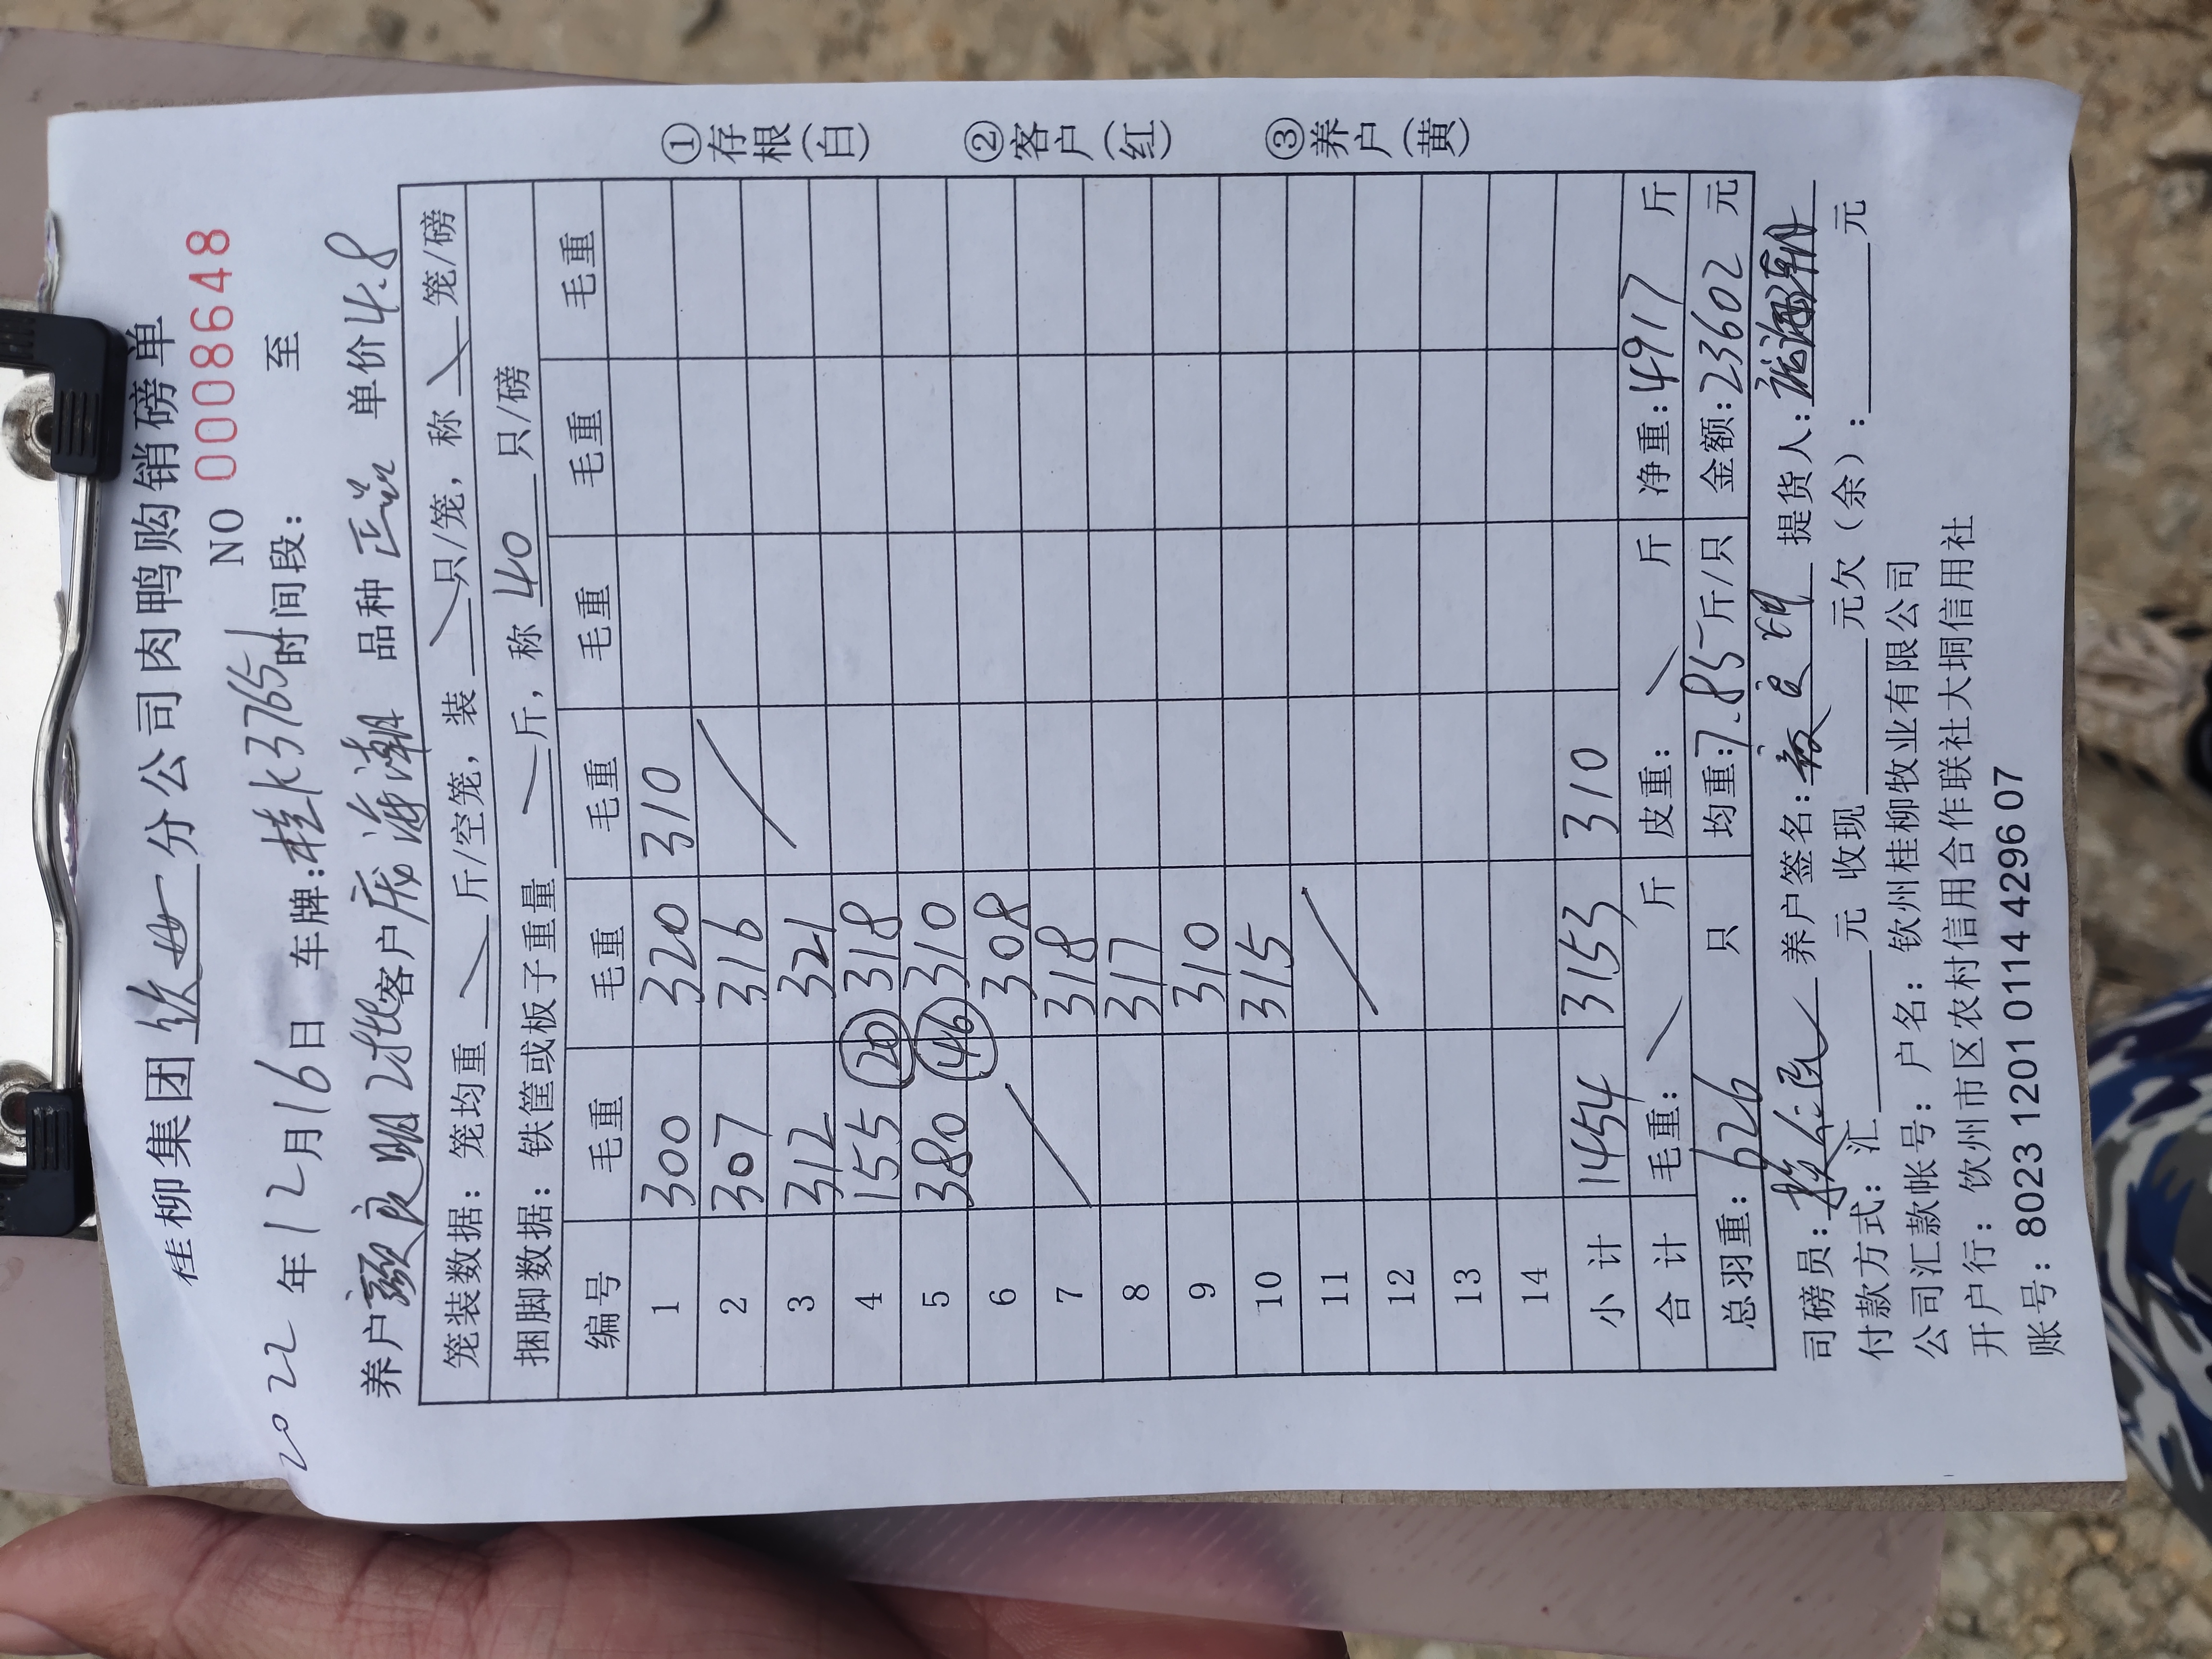 桂柳集团 钦州 分公司肉鸭购销磅单
NO 0008648
2022 年 12 月 16 日 车牌:桂K3765 时间段: 至
养户 颜良明2批 客户 庞海潮 品种 正品 单价 4.8
笼装数据: 笼均重 斤/空笼, 装 只/笼, 称 笼/磅
捆脚数据: 铁筐或板子重量 斤, 称 40 只/磅
编号 毛重 毛重 毛重 毛重 毛重 毛重
1 300 320 310
2 307 316
3 312 321
4 155 (20) 318
5 380 (46) 310
6 308
7 318
8 317
9 310
10 315
11
12
13
14
小计 1454 3153 310
合计 毛重: 斤 皮重: 斤 净重: 4917 斤
总羽重: 626 只 均重: 7.85 斤/只 金额: 23602 元
司磅员: 养户签名: 颜良明 提货人:
付款方式: 汇 元 收现 元欠(余): 元
公司汇款帐号: 户名: 钦州桂柳牧业有限公司
开户行: 钦州市区农村信用合作联社大垌信用社
账号: 8023 1201 0114 4296 07
①存根(白) ②客户(红) ③养户(黄)